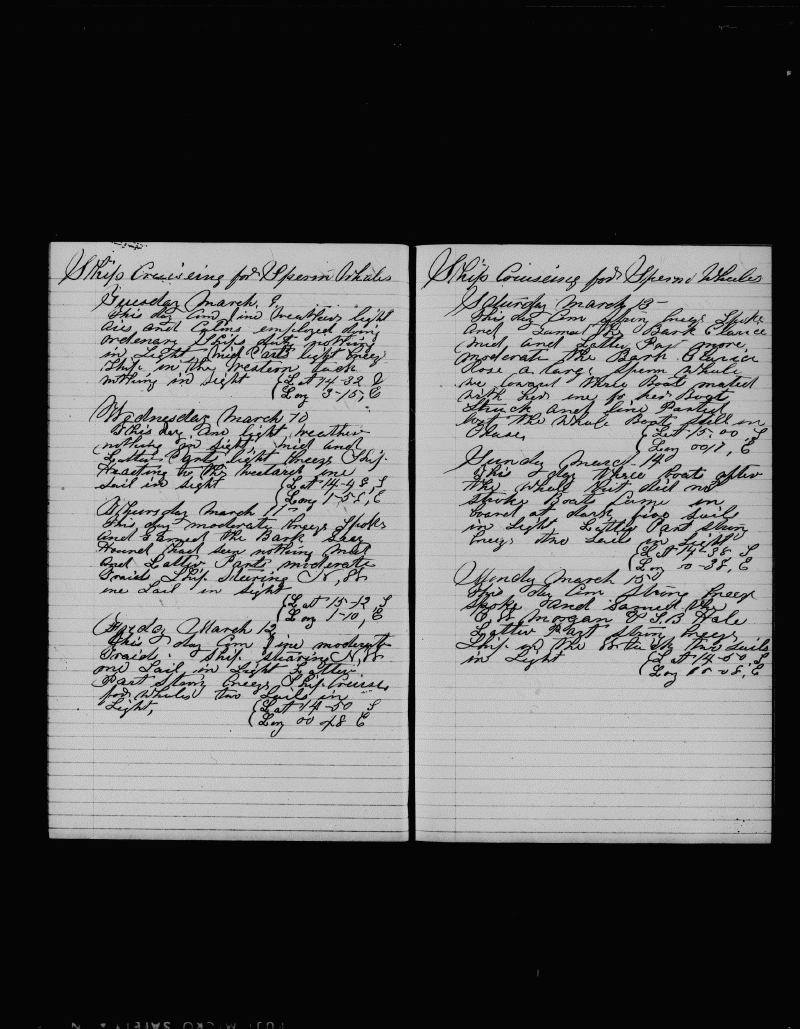 Ship Cruiseing for Sperm Whales
Tuesday March 9
This day Com fine weather light
airs and Calms employed doing
ordenary Ships duty nothing
in Sight Mid Parts light breez
Ship in the Western tack
nothing in sight {Lat 14-32 S
{Lon 3-15, E
Wednesday March 10
this day Com light weather
nothing in sight, mid and
Latter Parts light breez Ship
Heading to the westward one
Sail in sight {Lat 14-48, S
{Long 1-58, E
Thursday March 11
this day moderate breez Spoke
and Gamed the Bark
had seen nothing Mid
and Latter Parts moderate
Traids Ship Steering N, W
one Sail in sight
{Lat 15-12 S
{Long 1-10, E
Fryday March 12
this day Com fine moderate
Traids Ship stearing N, W
one Sail in Sight Latter
Part Strong breez Ship Cruises
for Whales two Sails in
Sight, {Lat 14-50 S
{Long 00 48 E
Ship Cruiseing for Sperm Whales
Saturday March 13
this day Com breez Spoke
and Gamed the Bark Clarice
mid, and Latter Par more
moderate the Bark Clarice
rose a large Sperm Whale
we lowered three Boat mated
with her one of her Boat
Struck and line Parted
lost the Whale Boats still in
Chase, {Lat 15, 00 S
{Long 001, E
Sunday March 14
this day three boats after
the whale but did not
strike Boats Came in
board at dark five Sail
in Sight Latter Part Strong
breez two Sail in Sight
{Lat 14-38 S
{Long 0-38, E
Monday March 15
this day Com strong breez
spoke and Gamed the
C, W Morgan & S.B Hale
Latter Part strong breez
Ship on the tack two Sails
in Sight {Lat 14-50, S
{Long E